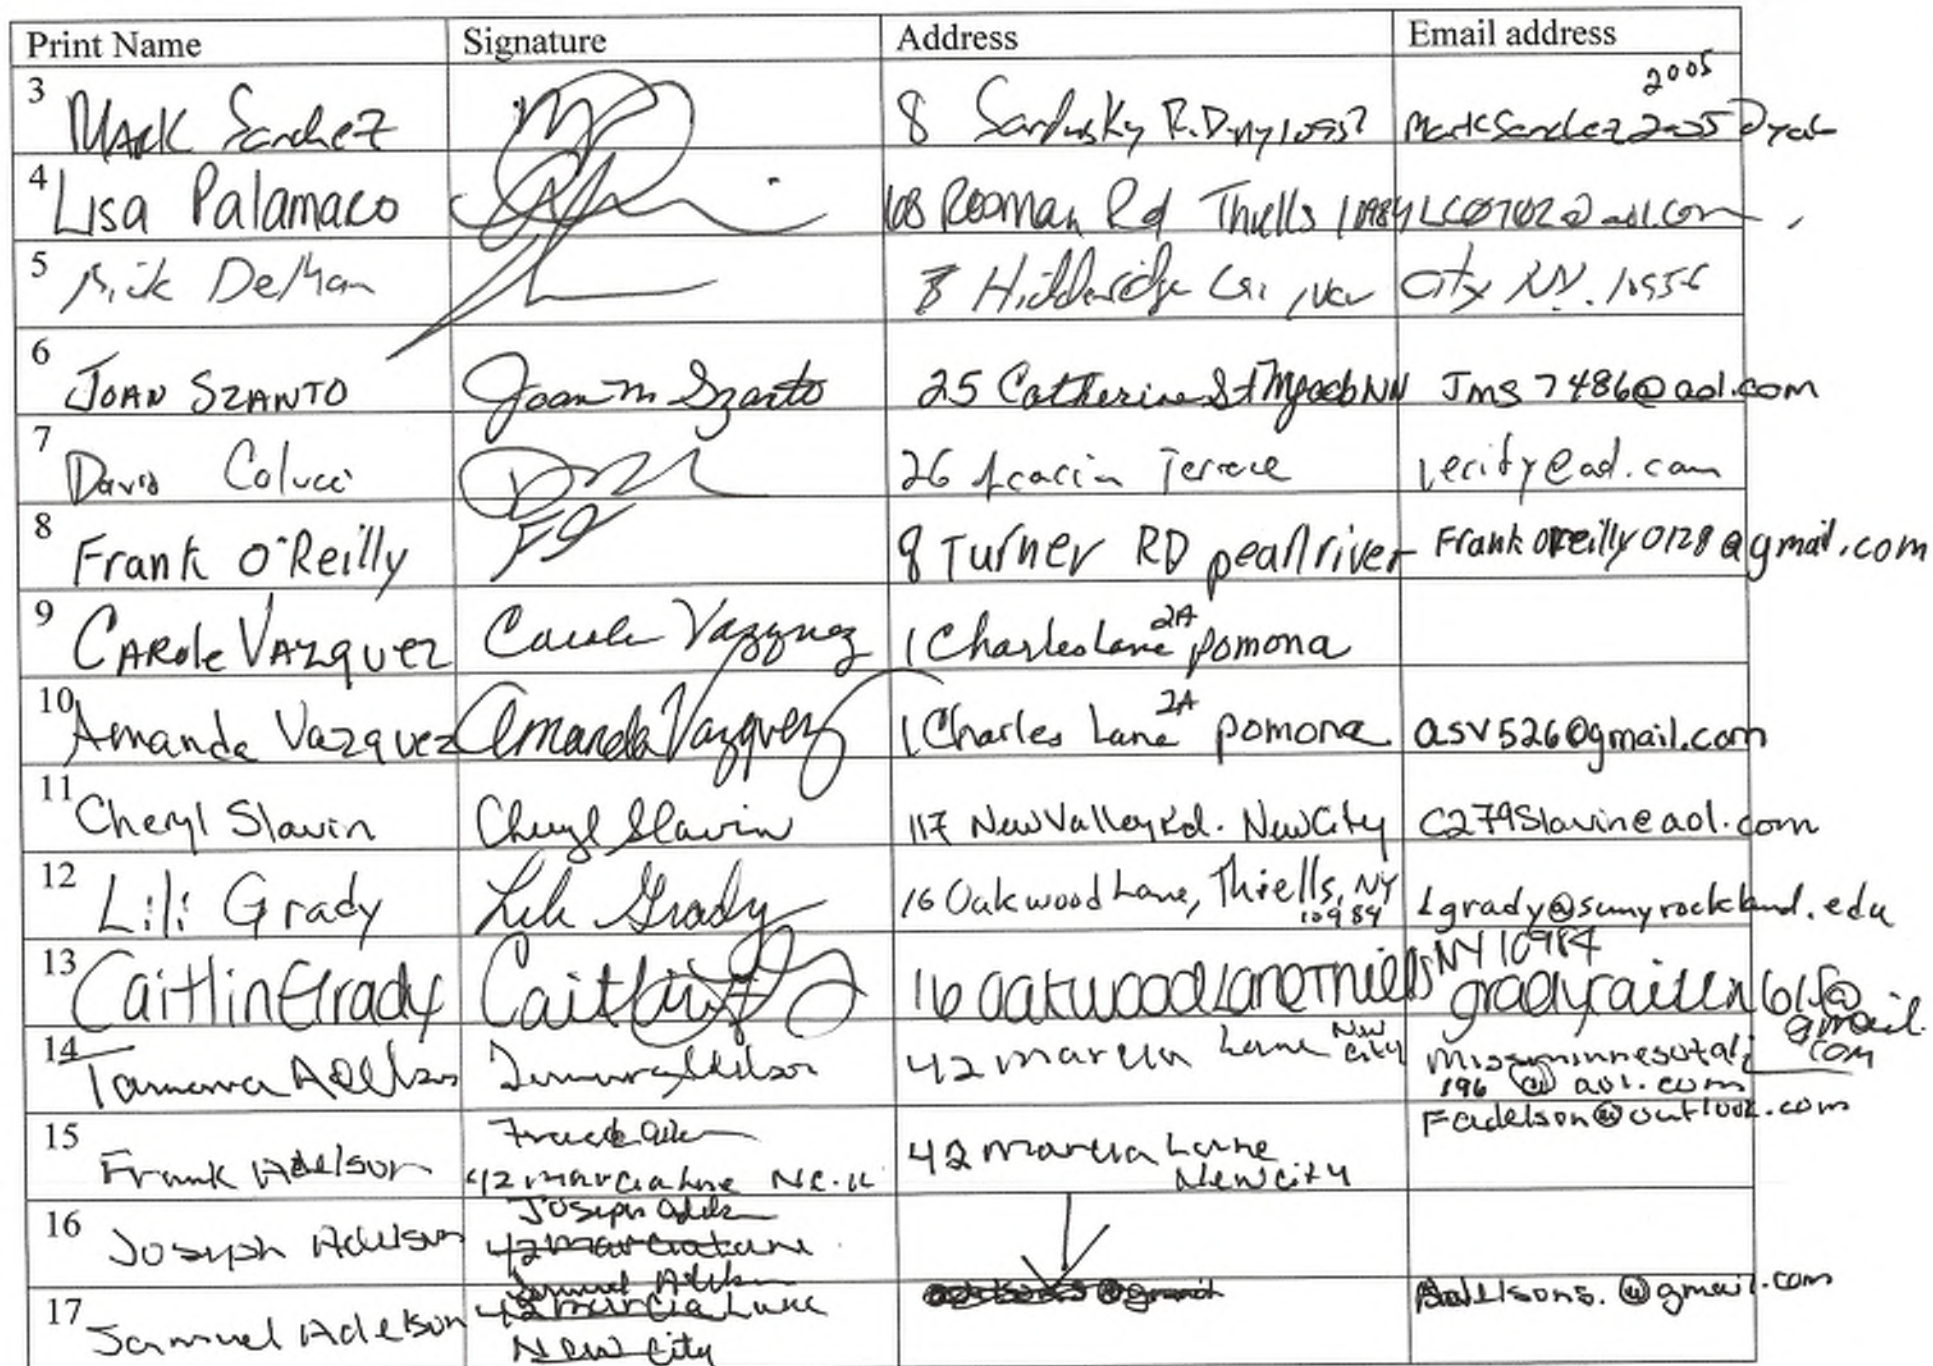 Print Name Signature Address Email address
2005
3 Mark Sanchez 8 Sandusky R.D ny 10957 MarkSanchez2005@yah
4 Lisa Palamaco 108 Rosman Rd Thiells 10984 LCO702@aol.com
5 City NY. 10956
6 JOAN SZANTO Joan M Szanto 25 Catherine St Nyack NY Jms7486@aol.com
7 David Colucci 26 Acacia Terrace verify@aol.com
8 Frank O'Reilly 8 Turner RD pearl river Frankoreilly0128@gmail.com
2A
9 CAROLE VAZQUEZ Carole Vazquez 1 Charles Lane pomona
2A
10 Amanda Vazquez Amanda Vazquez 1 Charles Lane pomona asv526@gmail.com
11 Cheryl Slavin Cheryl Slavin 117 New Valley Rd. New City C279Slavin@aol.com
12 Lili Grady Lili Grady 16 Oakwood Lane, Thiells, NY Lgrady@sunyrockland.edu
10984
NY 10984
13 Caitlin Grady Caitlin 16 Oakwood Lane Thiells gradycaitlin615@
gmail.
com
New
City
14 Tamara Adelson Tamara Adelson 42 Marcia Lane Missminnesota
196 @ aol.com
Fadelson@outlook.com
15 Frank Adelson 42 Marcia Lane
42 Marcia Lane New City
Joseph
16 Joseph Adelson 42 Marcia Lane
Samuel
17 Samuel Adelson 42 Marcia Lane @gmail Adelsons.@gmail.com
New City